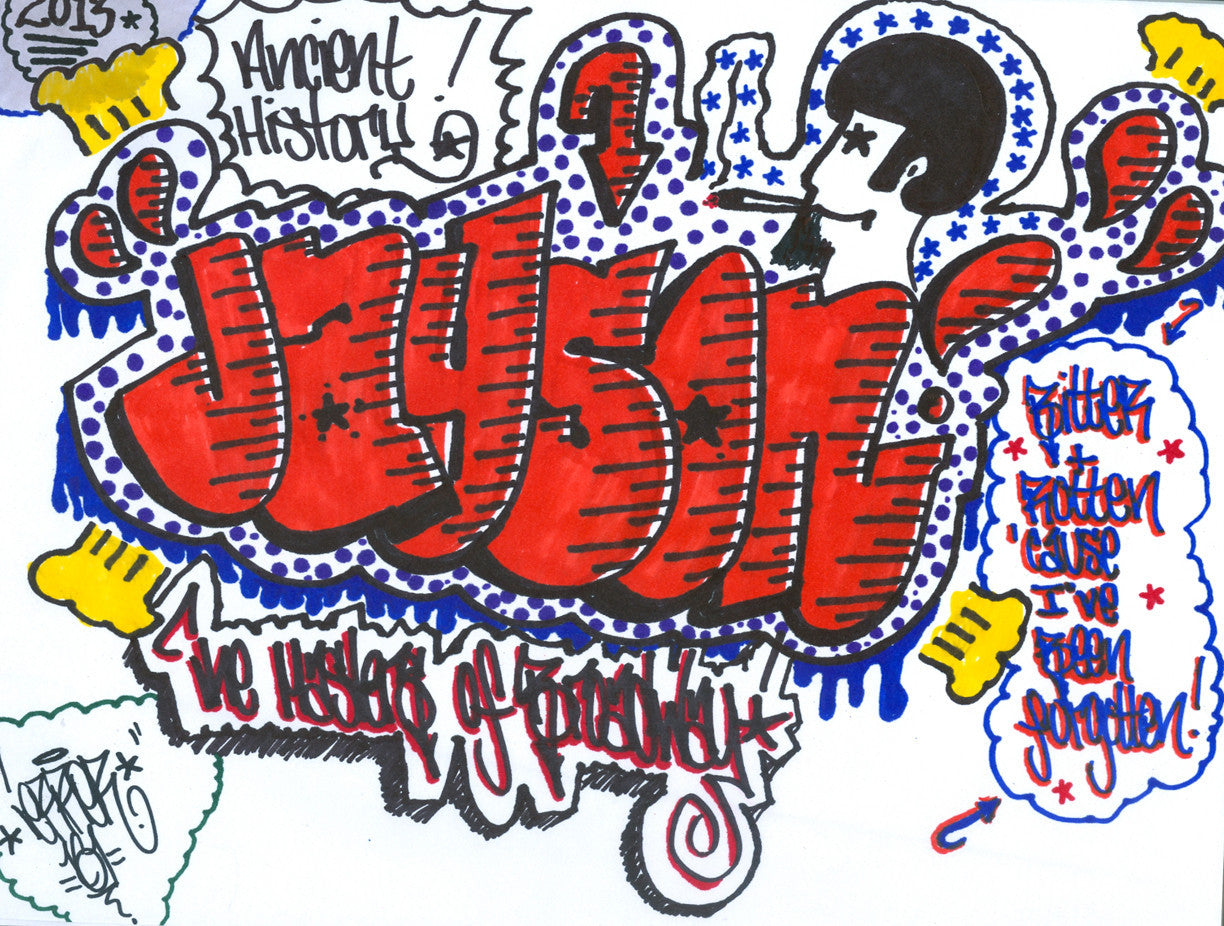 2013
Ancient
History!
JAYSON
The Hustlers of Broadway
Bitter
+
Rotten
'cause
I've
Been
forgotten!
Terror
161